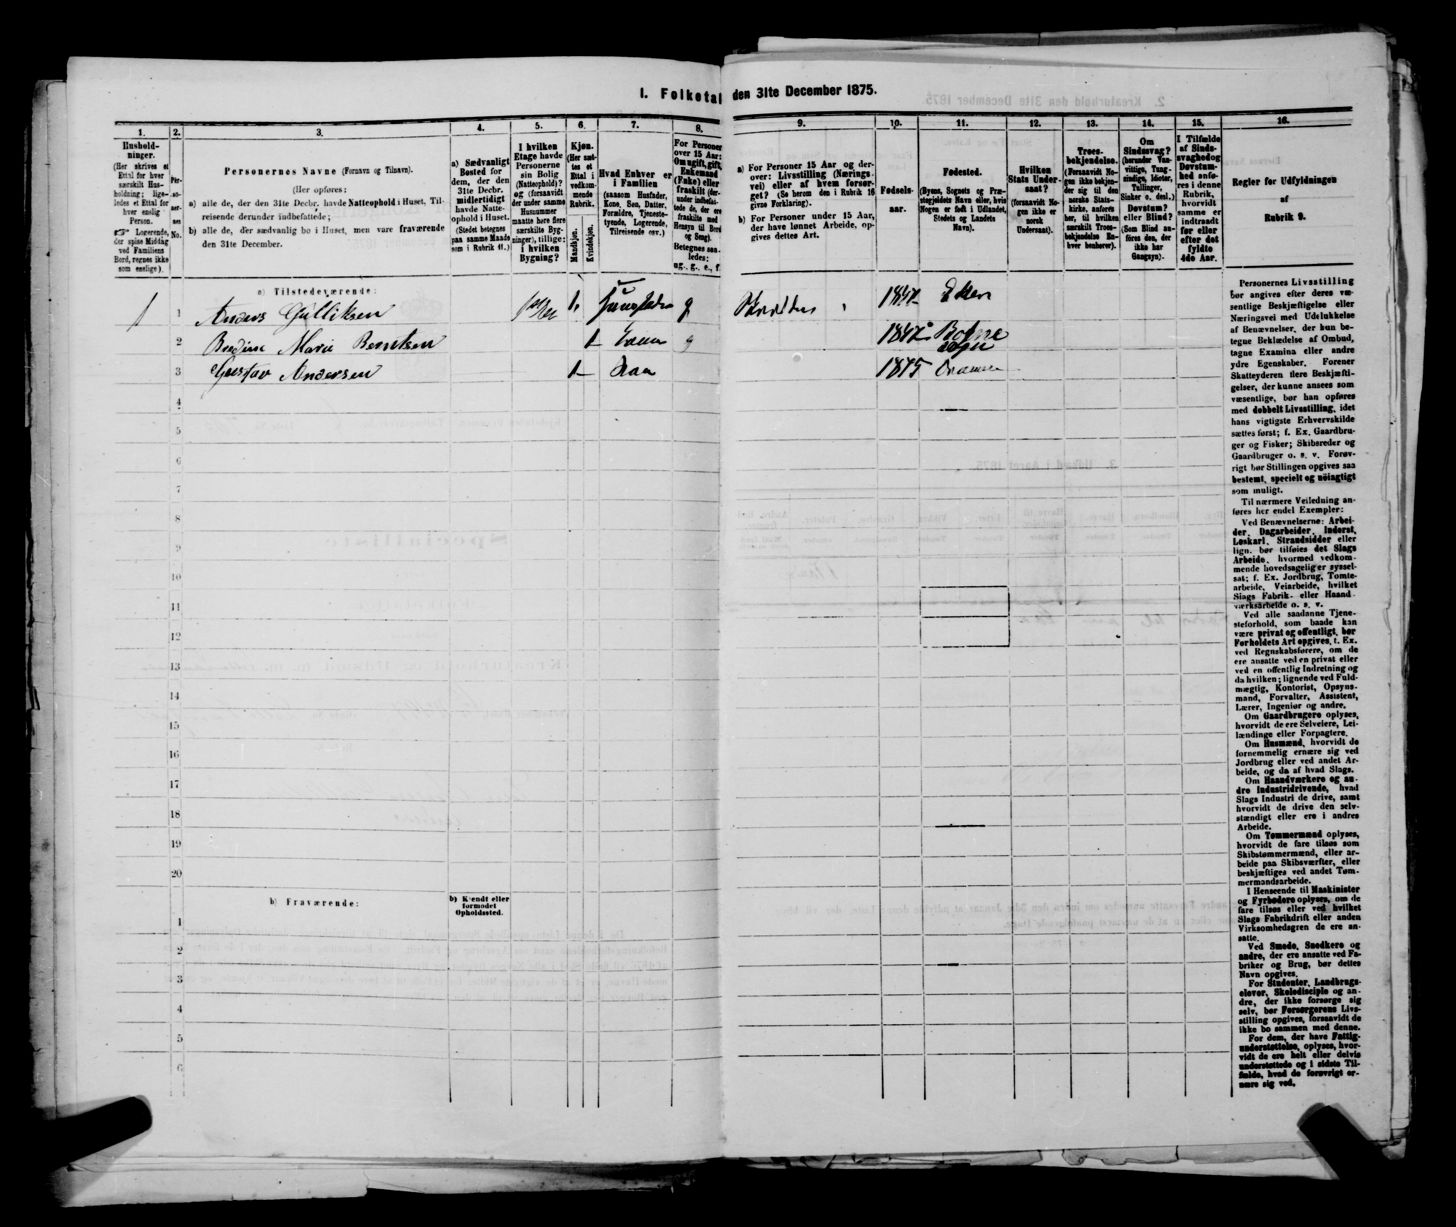 I. Folketal den 31te December 1875.
1.
2.
3.
4.
5.
6.
7.
8.
9.
10.
11.
12.
13.
14.
15.
16.
Hushold-
ninger.
(Her skrives et
Ettal for hver
særskilt Hus-
holdning; lige-
ledes et Ettal for
hver enslig
Person.
Logerende,
der spise Middag
ved Familiens
Bord, regnes ikke
som enslige).
Per-
so-
ner-
nes
No.
Personernes Navne (Fornavn og Tilnavn).
(Her opføres:
a) alle de, der den 31te Decbr. havde Natteophold i Huset, Til-
reisende derunder indbefattede;
b) alle de, der sædvanlig bo i Huset, men vare fraværende
den 31te December.
a) Sædvanligt
Bosted for
dem, der den
31te Decbr.
midlertidigt
havde Natte-
ophold i Huset.
(Stedet betegnes
paa samme Maade
som i Rubrik 11.)
I hvilken
Etage havde
Personerne
sin Bolig
(Natteophold)?
og (forsaavidt
der under samme
Husnummer
maatte være flere
særskilte Byg-
ninger), tillige:
i hvilken
Bygning?
Kjøn.
(Her sæt-
tes et
Ettal i
vedkom-
mende
Rubrik.
Mandkjøn.
Kvindekjøn.
Hvad Enhver er
i Familien
(saasom Husfader,
Kone, Søn, Datter,
Forældre, Tjeneste-
tyende, Logerende,
Tilreisende osv.)
For Personer
over 15 Aar:
Om ugift, gift,
Enkemand
(Enke) eller
fraskilt (der-
under indbefat-
tede de, der ere
fraskilte med
Hensyn til Bord
og Seng).
Betegnes saa-
ledes:
ug., g., e., f.
a) For Personer 15 Aar og der-
over: Livsstilling (Nærings-
vei) eller af hvem forsør-
get? (Se herom den i Rubrik 16
givne Forklaring).
b) For Personer under 15 Aar,
der have lønnet Arbeide, op-
gives dettes Art.
Fødsels-
aar.
Fødested.
(Byens, Sognets og Præ-
stegjeldets Navn eller, hvis
Nogen er født i Udlandet,
Stedets og Landets
Navn).
Hvilken
Stats Under-
saat?
(forsaavidt No-
gen ikke er
norsk
Undersaat).
Troes-
bekjendelse.
(Forsaavidt No-
gen ikke bekjen-
der sig til den
norske Stats-
kirke, anføres
her, til hvilken
særskilt Troes-
bekjendelse En-
hver benhører).
Om
Sindssvag?
(herunder Van-
vittige, Tung-
sindige, Idioter,
Tullinger,
Sinker o. desl.)
Døvstum?
eller Blind?
(Som Blind an-
føres den, der
ikke har
Gangsyn).
I Tilfælde
af Sinds-
svaghed og
Døvstum-
hed anfø-
res i denne
Rubrik,
hvorvidt
samme er
indtraadt
før eller
efter det
fyldte
4de Aar.
Regler for Udfyldningen
af
Rubrik 9.
a) Tilstedeværende:
1 1 Anders Gulliksen 1. Husfader g 1847 Eker
2 Bredine Marie Berntsen 1 Kone g 1847 Botne Sogn
3 Gustav Andersen 1 Søn 1875 Drammen
4
5
6
7
8
9
10
11
12
13
14
15
16
17
18
19
20
b) Fraværende:
b) Kjendt eller
formodet
Opholdssted.
1
2
3
4
5
6
Personernes Livsstilling
bør angives efter deres væ-
sentlige Beskjæftigelse eller
Næringsvei med Udelukkelse
af Benævnelser, der kun be-
tegne Beklædelse af Ombud,
tagne Examina eller andre
ydre Egenskaber. Forener
Skatteyderen flere Beskjæfti-
gelser, der kunne ansees som
væsentlige, bør han opføres
med dobbelt Livsstilling, idet
hans vigtigste Erhvervskilde
sættes først; f. Ex. Gaardbru-
ger og Fisker; Skibsreder og
Gaardbruger o. s. v. Forøv-
rigt bør Stillingen opgives saa
bestemt, specielt og nöiagtigt
som muligt.
Til nærmere Veiledning an-
føres her endel Exempler:
Ved Benævnelserne: Arbei-
der, Dagarbeider, Inderst,
Løskarl, Strandsidder eller
lign. bør tilføies det Slags
Arbeide, hvormed vedkom-
mende hovedsagelig er syssel-
sat; f. Ex. Jordbrug, Tomte-
arbeide, Veiarbeide, hvilket
Slags Fabrik- eller Haand-
værksarbeide o. s. v.
Ved alle saadanne Tjene-
steforhold, som baade kan
være privat og offentligt, bør
Forholdets Art opgives, f. Ex.
ved Regnskabsførere, om de
ere ansatte ved en privat eller
ved en offentlig Indretning og
da hvilken; lignende ved Fuld-
mægtig, Kontorist, Opsyns-
mand, Forvalter, Assistent,
Lærer, Ingeniør og andre.
Om Gaardbrugere oplyses,
hvorvidt de ere Selveiere, Lei-
lændinge eller Forpagtere.
Om Husmænd, hvorvidt de
fornemmelig ernære sig ved
Jordbrug eller ved andet Ar-
beide, og da af hvad Slags.
Om Haandværkere og an-
dre Industridrivende, hvad
Slags Industri de drive, samt
hvorvidt de drive den selv-
stændigt eller ere i andres
Arbeide.
Om Tømmermænd oplyses,
hvorvidt de fare tilsøs som
Skibstømmermænd, eller ar-
beide paa Skibsværfter, eller
beskjæftiges ved andet Tøm-
mermandsarbeide.
I Henseende til Maskinister
og Fyrbødere oplyses, om de
fare tilsøs eller ved hvilket
Slags Fabrikdrift eller anden
Virksomhedsgren de ere an-
satte.
Ved Smede, Snedkere og
andre, der ere ansatte ved Fa-
briker og Brug, bør dettes
Navn opgives.
For Studenter, Landbrugs-
elever, Skoledisciple og an-
dre, der ikke forsørge sig
selv, bør Forsørgerens Livs-
stilling opgives, forsaavidt de
ikke bo sammen med denne.
For dem, der have Fattig-
understøttelse, oplyses, hvor-
vidt de ere helt eller delvis
understøttede og i sidste Til-
fælde, hvad de forøvrigt er-
nære sig ved.